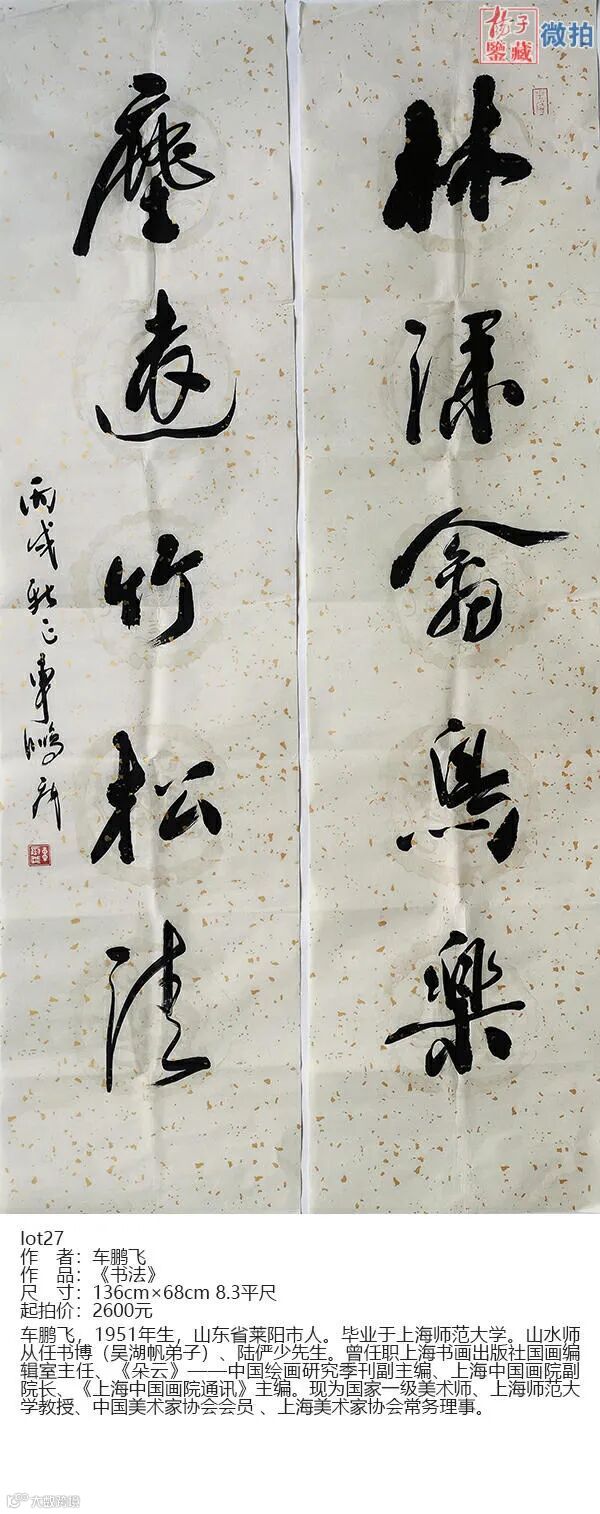 楊子
鑒藏 微拍
林深禽鳥樂
塵遠竹松清
丙戌秋 車鵬飛
lot27
作　者：车鹏飞
作　品：《书法》
尺　寸：136cm×68cm 8.3平尺
起拍价：2600元
车鹏飞，1951年生，山东省莱阳市人。毕业于上海师范大学。山水师
从任书博（吴湖帆弟子）、陆俨少先生。曾任职上海书画出版社国画编
辑室主任、《朵云》——中国绘画研究季刊副主编、上海中国画院副
院长、《上海中国画院通讯》主编。现为国家一级美术师、上海师范大
学教授、中国美术家协会会员 、上海美术家协会常务理事。
大数跨境